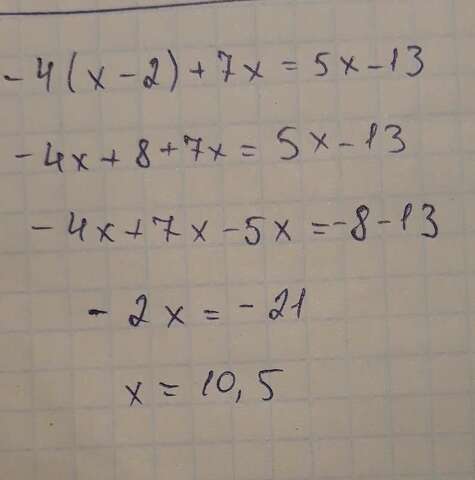 -4(x-2)+7x=5x-13
-4x+8+7x=5x-13
-4x+7x-5x=-8-13
-2x=-21
x=10,5